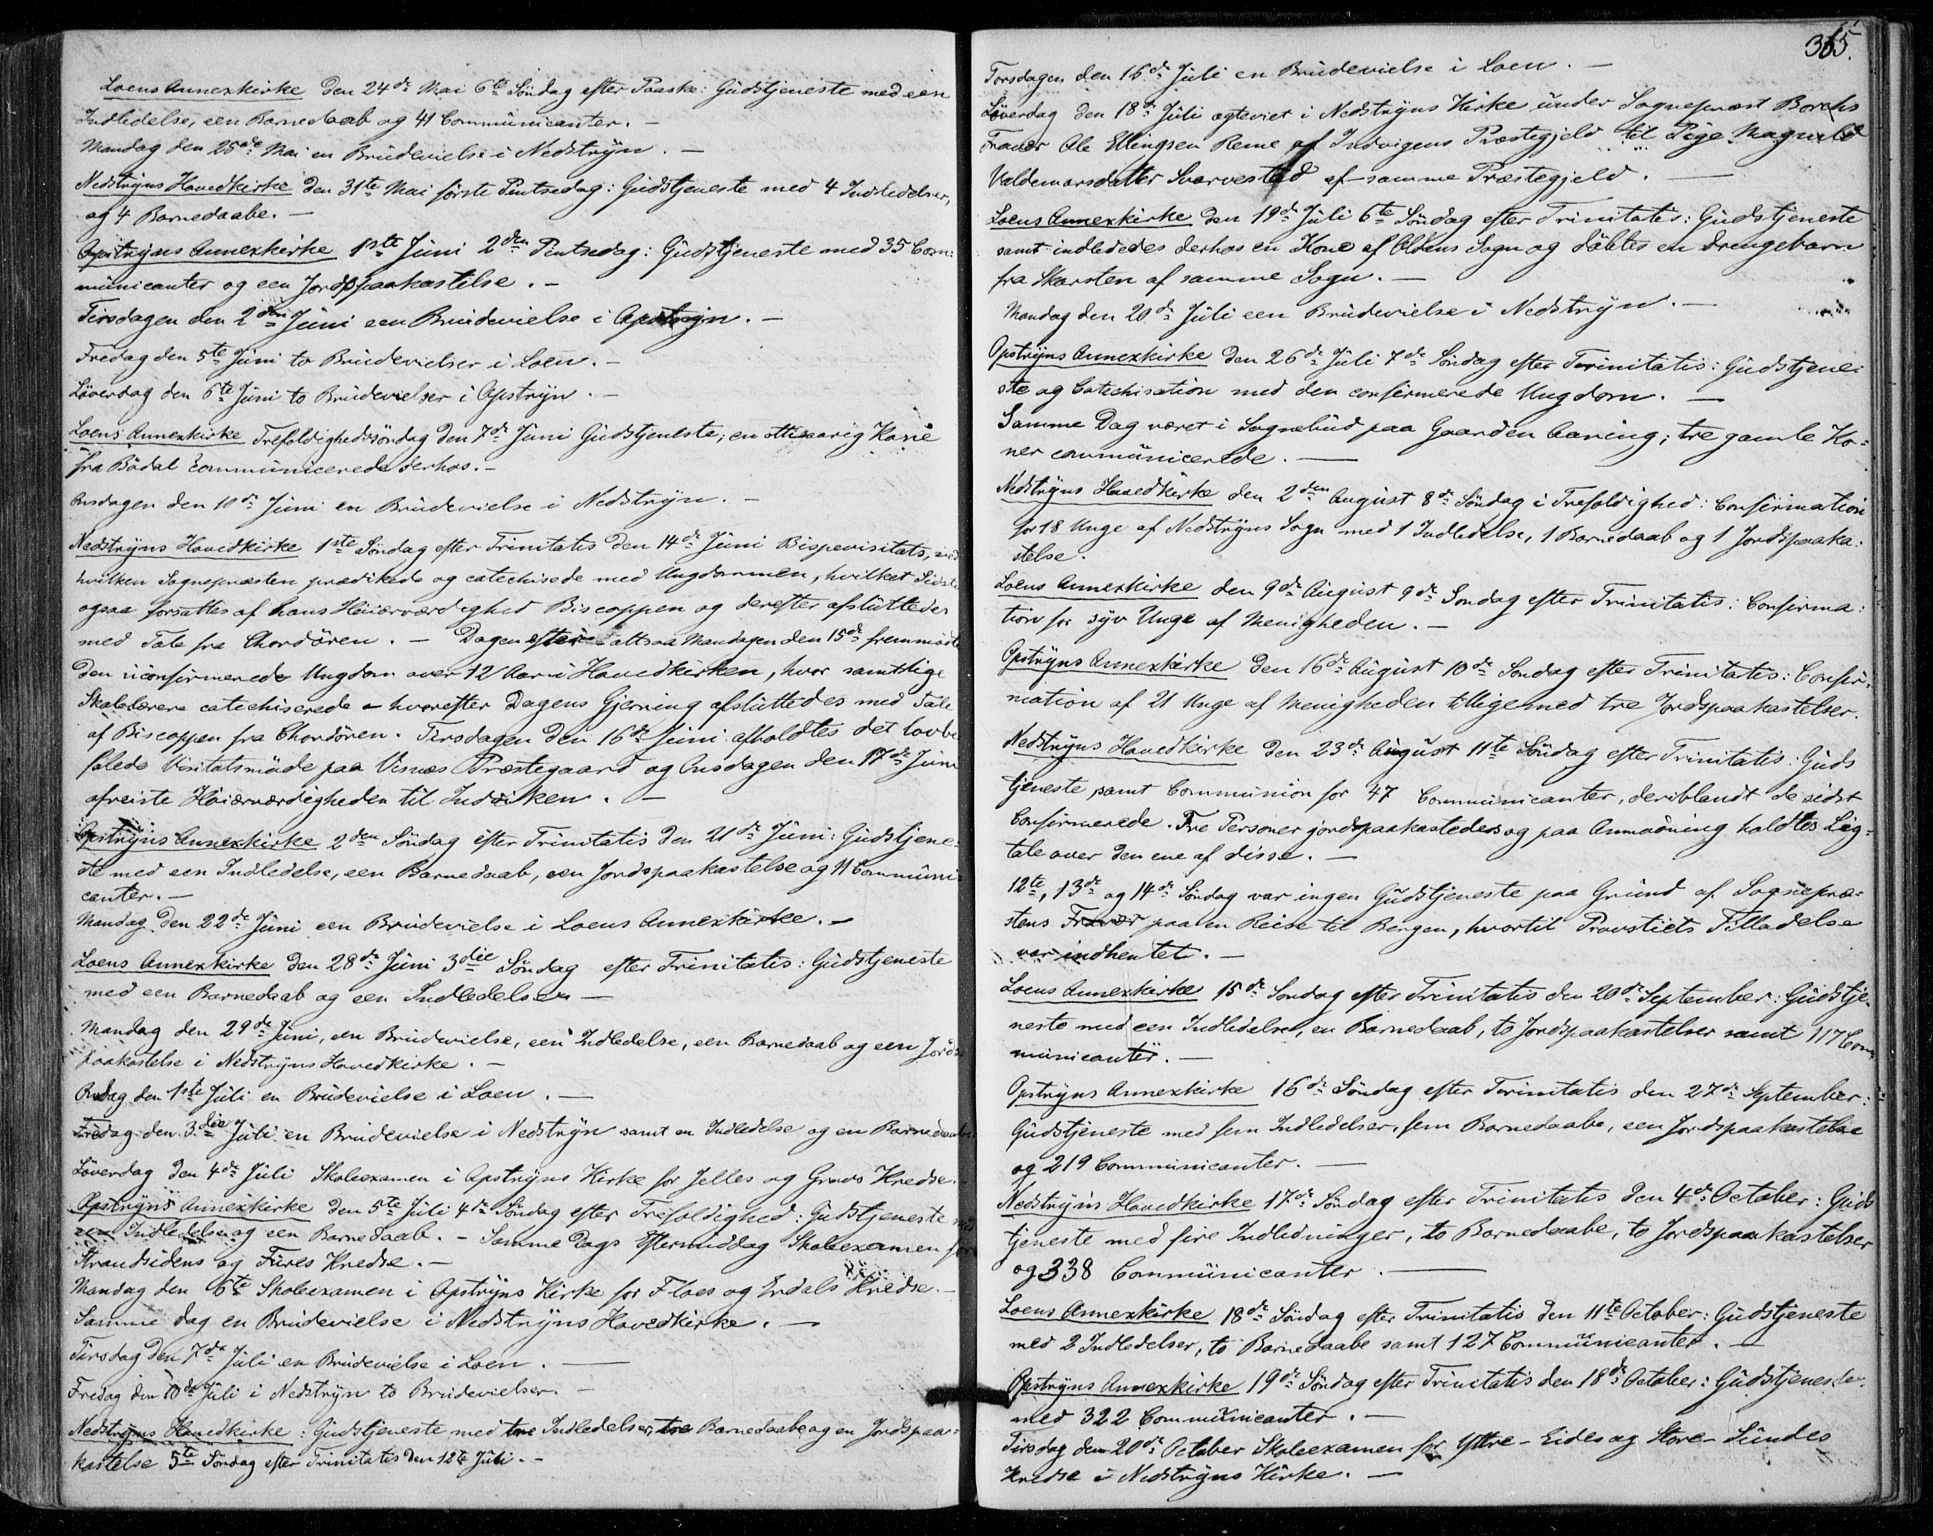 Loens Annexkirke den 24de Mai 6te Søndag efter Paaske: Gudstjeneste med een
Indledelse, een Barnedaab og 41 Communicanter. —
Mandag den 25de Mai en Brudevielse i Nedstryn. —
Nedstryns Hovedkirke den 31te Mai første Pintsedag: Gudstjeneste med 4 Indledelser,
og 4 Barnedaabe. —
Opstryns Annexkirke 1ste Juni 2den Pintsedag: Gudstjeneste med 35 Com:
municanter og een Jordspaakastelse. —
Tirsdagen den 2den Juni een Brudevielse i Opstryn. —
Fredag den 5te Juni to Brudevielser i Loen. —
Løverdag den 6te Juni to Brudevielser i Opstryn. —
Loens Annexkirke Trefoldighedssøndag den 7de Juni Gudstjeneste; en ottiaarig Kone
fra Bødal communicerede derhos. —
Onsdagen den 10de Juni en Brudevielse i Nedstryn. —
Nedstryns Hovedkirke 1ste Søndag efter Trinitatis den 14de Juni Bispevisitats, ved
hvilken Sognepræsten prædikede og catechisede med Ungdommen, hvilket Sidste
ogsaa forsattes af hans Høiærværdighed Biscoppen og derefter afsluttedes
med Tale fra Chordøren. — Dagen efter altsaa Mandagen den 15de fremmødte
den uconfirmerede Ungdom over 12 Aar i Hovedkirken, hvor samtlige
Skolelærere catechiserede – hvorefter Dagens Gjerning afsluttedes med Tale
af Biscoppen fra Chordøren. Tirsdagen den 16de Juni afholdtes det lovbe
falede Visitatsmøde paa Visnæs Præstegaard og Onsdagen den 17de Juni
afreiste Høiærværdigheden til Indviken. —
Opstryns Annexkirke 2den Søndag efter Trinitatis den 21de Juni: Gudstjene:
ste med een Indledelse, een Barnedaab, een Jordspaakastelse og 11 Communi:
canter. —
Mandag den 22de Juni een Brudevielse i Loens Annexkirke. —
Loens Annexkirke den 28de Juni 3die Søndag efter Trinitatis: Gudstjeneste
med een Barnedaab og een Indledelse —
Mandag den 29de Juni, en Brudevielse, een Indledelse, een Barnedaab og een Jords:
paakastelse i Nedstryns Hovedkirke. —
Onsdag den 1ste Juli en Brudevielse i Loen. —
Fredag den 3die Juli en Brudevielse i Nedstryn samt en Indledelse og en Barnedaab
Løverdag den 4de Juli Skoleexamen i Opstryns Kirke for Jelles og Grovs Kredse.
Opstryns Annexkirke den 5te Juli 4de Søndag efter Trefoldighed: Gudstjeneste med
een Indledelse og een Barnedaab. — Samme Dags Eftermiddag Skoleexamen for
Strandsidens og Fures Kredse. —
Mandag den 6te Skoleexamen i Opstryns Kirke for Floes og Erdals Kredse. —
Samme dag en Brudevielse i Nedstryns Hovedkirke. —
Tirsdag den 7de Juli en Brudevielse i Loen. —
Fredag den 10de Juli i Nedstryn to Brudevielser. —
Nedstryns Hovedkirke: Gudstjeneste med tre Indledelser, tre Barnedaabe og en Jordspaa:
kastelse 5te Søndag efter Trinitatis den 12te Juli. —
365.
Torsdagen den 16de Juli en Brudevielse i Loen. —
Løverdag den 18de Juli ægteviet i Nedstryns Kirke under Sognepræst Borchs
Fravær Ole Ellingsen Reme af Indvigens Præstegjeld til Pige Magnild
Valdemarsdatter Svarvestad af samme Præstegjeld. —
Loens Annexkirke den 19de Juli 6te Søndag efter Trinitatis: Gudstjeneste
samt indlededes derhos en Kone af Oldens Sogn og døbtes en Drengebarn
fra Skarsten af samme Sogn. —
Mandag den 20de Juli een Brudevielse i Nedstryn. —
Opstryns Annexkirke den 26de Juli 7de Søndag efter Trinitatis: Gudstjene:
ste og Catechisation med den confirmerede Ungdom. —
Samme Dag været i Sognebud paa Gaarden Aaning; tre gamle Ko:
ner communicerede. —
Nedstryns Hovedkirke den 2den August 8de Søndag i Trefoldighed: Confirmation
for 18 Unge af Nedstryns Sogn med 1 Indledelse, 1 Barnedaab og 1 Jordspaaka:
stelse.
Loens Annexkirke den 9de August 9de Søndag efter Trinitatis: Confirma:
tion for syv Unge af Menigheden. —
Opstryns Annexkirke den 16de August 10de Søndag efter Trinitatis: Confir:
mation af 21 Unge af Menigheden tilligemed tre Jordspaakastelser.
Nedstryns Hovedkirke den 23de August 11te Søndag efter Trinitatis: Guds
tjeneste, samt Communion for 47 Communicanter, deriblandt de sidst
Confirmerede. Tre Personer jordspaakastedes og paa Anmodning holdtes Lig:
tale over den ene af disse. —
12te, 13de og 14de Søndag var ingen Gudstjeneste paa Grund af Sognepræ:
stens Fravær paa en Reise til Bergen, hvortil Provstiets Tilladelse
var indhentet. —
Loens Annexkirke 15de Søndag efter Trinitatis den 20de September: Gudstje:
neste med een Indledelse, en Barnedaab, to Jordspaakastelser samt 117 Com
municanter. —
Opstryns Annexkirke 16de Søndag efter Trinitatis den 27de September:
Gudstjeneste med fem Indledelser, fem Barnedaabe, een Jordspaakastelse
og 219 Communicanter. —
Nedstryns Hovedkirke 17de Søndag efter Trinitatis den 4de October: Guds
tjeneste med fire Indledninger, to Barnedaabe, to Jordspaakastelser
og 338 Communicanter. —
Loens Annexkirke 18de Søndag efter Trinitatis den 11te October: Gudstjeneste
med 2 Indledelser, to Barnedaabe samt 127 Communicanter. —
Opstryns Annexkirke 19de Søndag efter Trinitatis den 18de October: Gudstjeneste
med 322 Communicanter. —
Tirsdag den 20de October Skoleexamen for Yttre-Eides og Store-Sundes
Kredse i Nedstryns Kirke. —